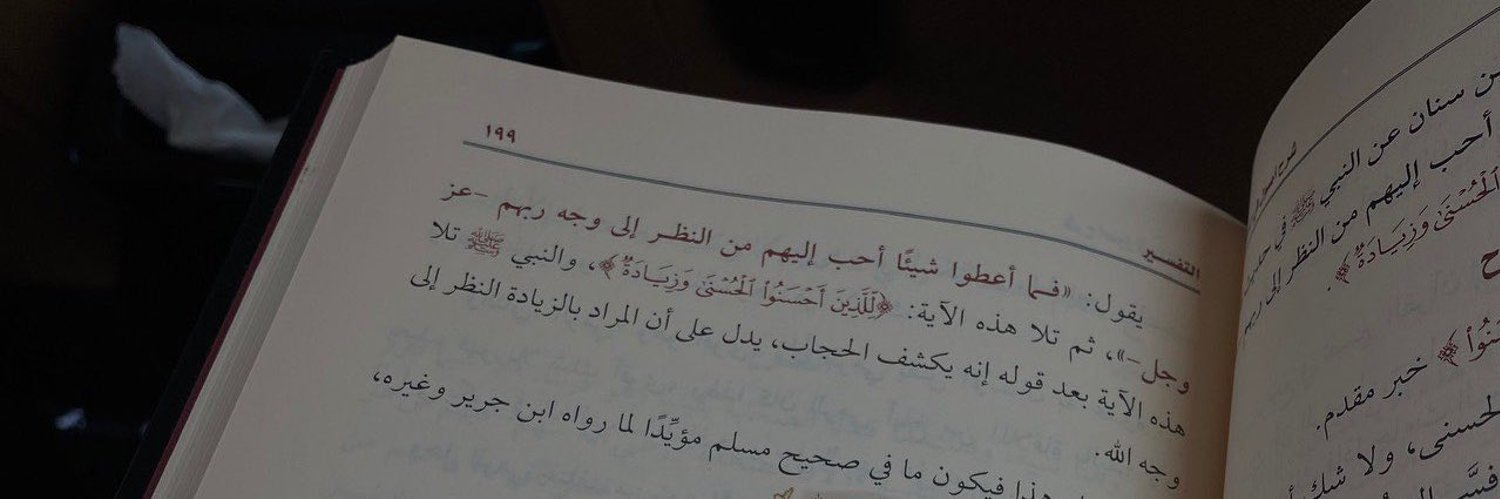 شرح أصول
ن سنان عن النبي ﷺ في
أحب إليهم من النظر إلى
الْحُسْنَىٰ وَزِيَادَةٌ ﴾.
﴾ خبر مقدم.
لحسنى، ولا شك
التفسير ١٩٩
يقول: «فما أعطوا شيئًا أحب إليهم من النظر إلى وجه ربهم -عز
وجل-»، ثم تلا هذه الآية: ﴿لِّلَّذِينَ أَحْسَنُوا۟ ٱلْحُسْنَىٰ وَزِيَادَةٌ﴾، والنبي ﷺ تلا
هذه الآية بعد قوله إنه يكشف الحجاب، يدل على أن المراد بالزيادة النظر إلى
وجه الله.
هذا فيكون ما في صحيح مسلم مؤيِّدًا لما رواه ابن جرير وغيره،